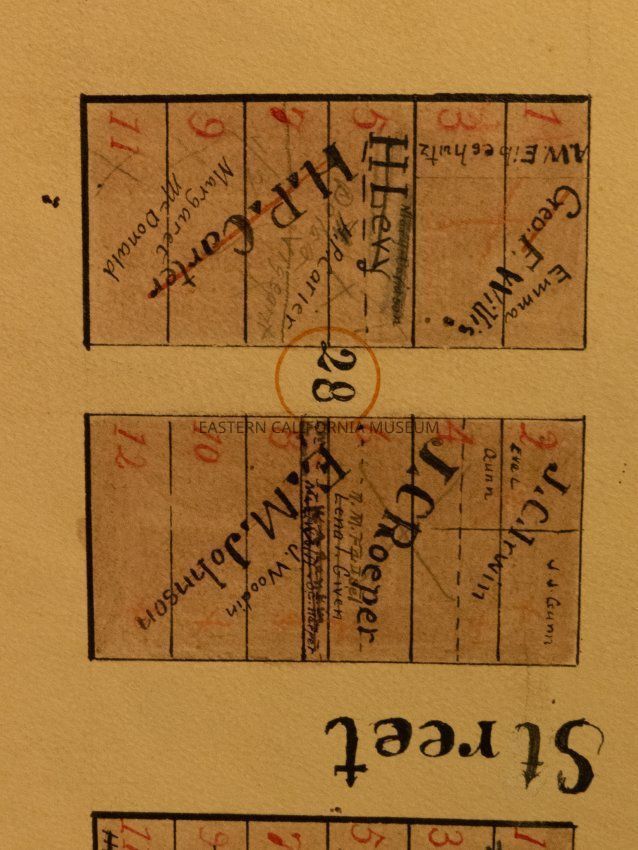 11
9
7
5
3
1
A.W. Eibeshutz
Geo. F. Willis
Emma
H Levy
H.P. Carter
H.P. Carter
Margaret
McDonald
28
EASTERN CALIFORNIA MUSEUM
12
10
8
6
4
2
Eva L
Gunn
J.C. Irwin
J J Gunn
J.C Roeper
Lena I. Given
F.M. Johnson
J. Woodin
Street
11
9
7
5
3
1